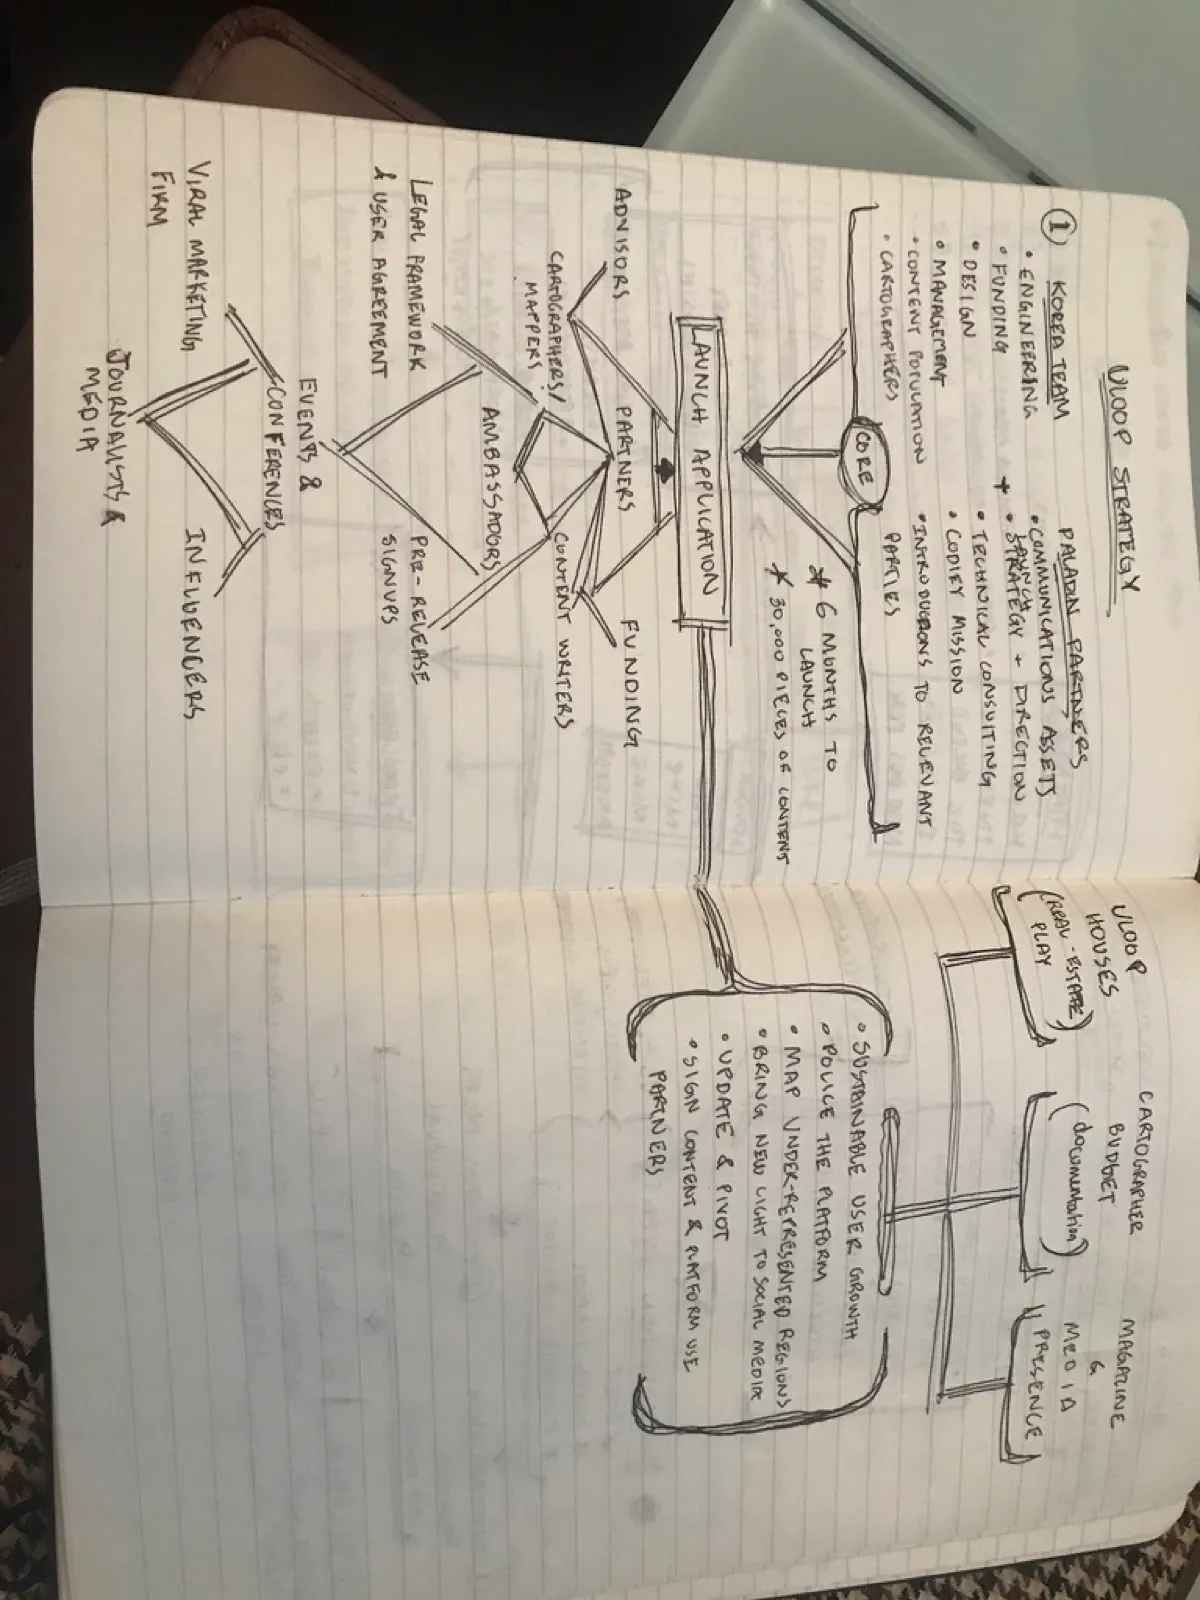 ULOOP STRATEGY
① KOREA TEAM
• ENGINEERING
• FUNDING
• DESIGN
• MANAGEMENT
• CONTENT POPULATION
• CARTOGRAPHERS
+
PALADIN PARTNERS
• COMMUNICATIONS ASSETS
• LAUNCH
STRATEGY + DIRECTION
• TECHNICAL CONSULTING
• CODIFY MISSION
• INTRODUCTIONS TO RELEVANT
PARTIES
CORE
* 6 MONTHS TO
LAUNCH
* 30,000 PIECES OF CONTENT
LAUNCH APPLICATION
ADVISORS
PARTNERS
FUNDING
CARTOGRAPHERS/
MAPPERS
CONTENT WRITERS
AMBASSADORS
LEGAL FRAMEWORK
& USER AGREEMENT
PRE-RELEASE
SIGNUPS
EVENTS &
CONFERENCES
VIRAL MARKETING
FIRM
INFLUENCERS
JOURNALISTS &
MEDIA
ULOOP
HOUSES
(REAL-ESTATE
PLAY)
CARTOGRAPHER
BUDGET
(documentation)
MAGAZINE
&
MEDIA
PRESENCE
• SUSTAINABLE USER GROWTH
• POLICE THE PLATFORM
• MAP UNDER-REPRESENTED REGIONS
• BRING NEW LIGHT TO SOCIAL MEDIA
• UPDATE & PIVOT
• SIGN CONTENT & PLATFORM USE
PARTNERS